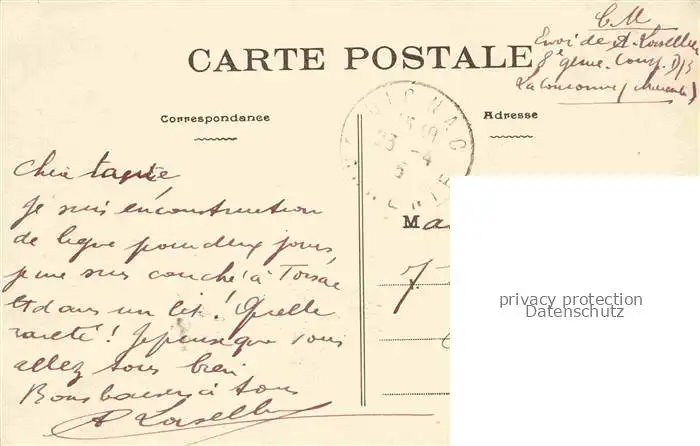 C M
Envoi de A. Loiselle
8e génie. Comp. D/3
La Couronne (Charente)
CARTE POSTALE
Correspondance
Adresse
Chère tante
Je suis en construction
de ligne pour deux jours
je me suis couché à Torsac
et dans un lit! Quelle
rareté! Je pense que vous
allez tous bien
Bons baisers à tous
A Loiselle
Ma
privacy protection
Datenschutz